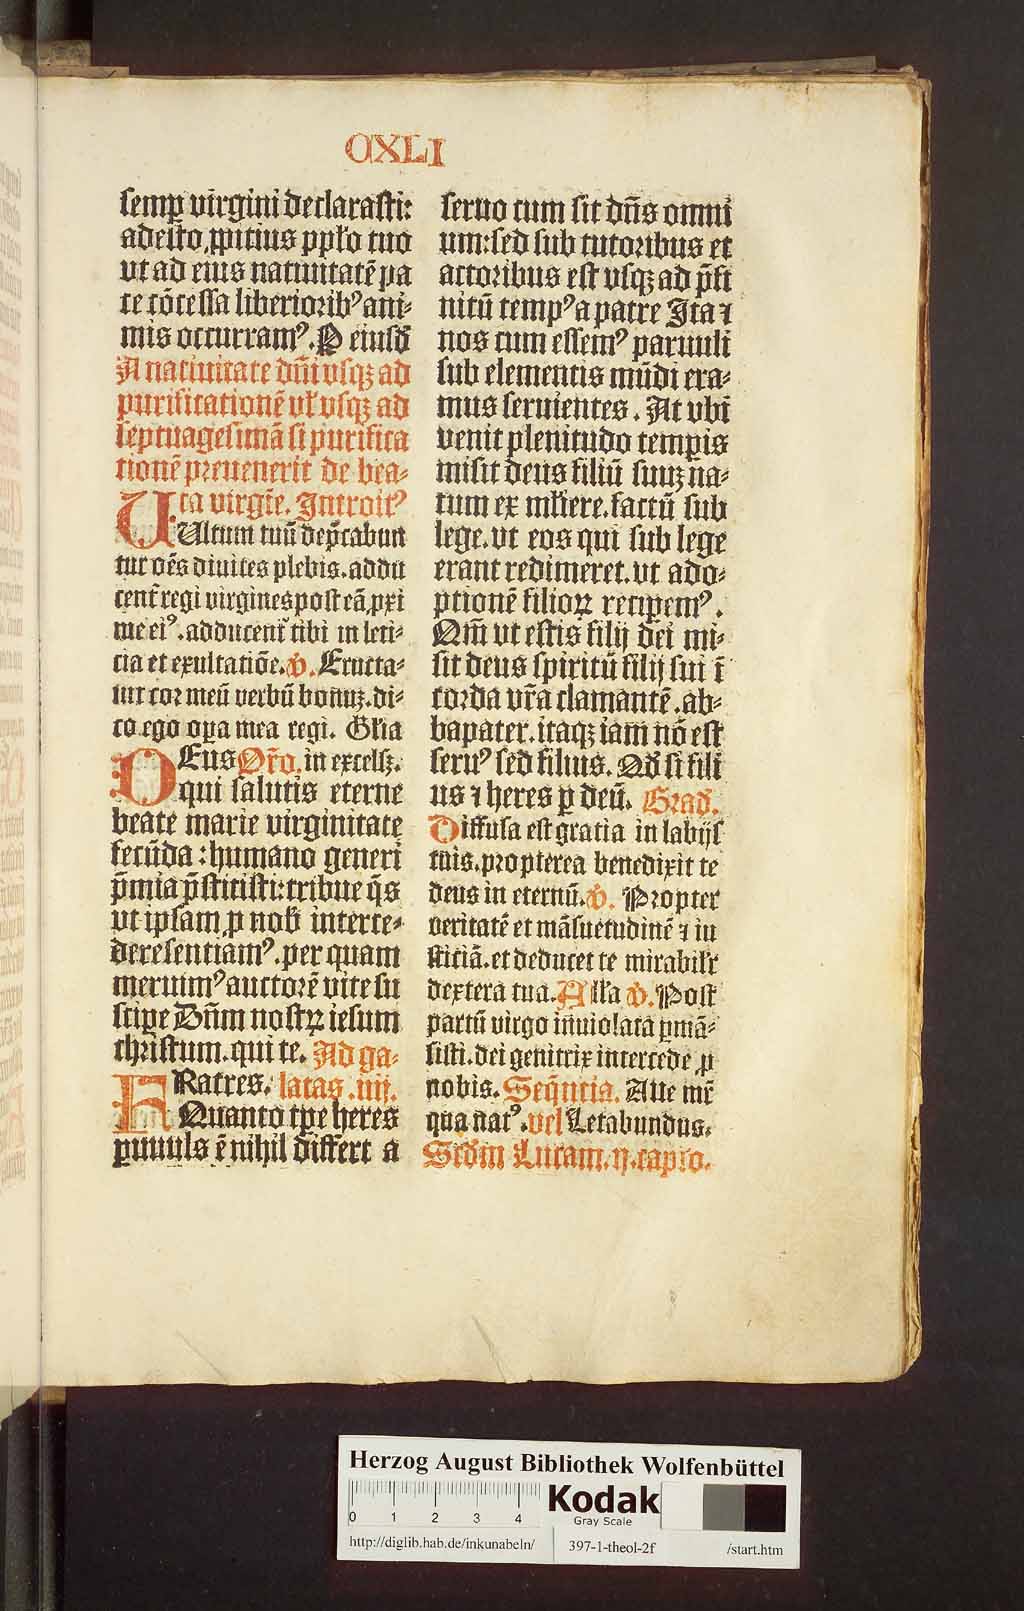 CXLI
semꝑ virgini declarasti:
adesto ꝓpitius ppło tuo
vt ad eius natiuitatē pa
te cōcessa liberiorib⁹ ani-
mis occurram⁹. P eiusđ
A natiuitate dn̄i vsqꝫ ad
purificationē vł vsqꝫ ad
septuagesimā si purifica
tionē preuenerit de bea-
ta virgīe. Introit⁹
VUltum tuū dep̄cabun
tur oēs diuites plebis. addu
cent̄ regi virgines post eā, ꝓxi
me ei⁹. adducent̄ tibi in leti-
cia et exultatiōe. v̓. Eructa-
uit cor meū verbū bonuꝫ. di-
co ego opa mea regi. Głia
DEus Or̄o. in excelsꝫ.
qui salutis eterne
beate marie virginitate
fecūda: humano generi
p̄mia p̄stitisti: tribue q̄s
vt ipsam ꝓ nob̄ interce-
dere sentiam⁹. per quam
meruim⁹ auctorē vite su
scipe Dn̄m nostrꝝ iesum
christum. qui te. Ad ga-
FRatres. latas .iiij.
Quanto tp̄e heres
ꝑuuuls ē nihil differt a
seruo cum sit dn̄s omni
um: sed sub tutoribus et
actoribus est vsqꝫ ad p̄fi
nitū temp⁹ a patre Ita ⁊
nos cum essem⁹ paruuli
sub elementis mūdi era-
mus seruientes. At vbi
venit plenitudo tempis
misit deus filiū suuꝫ na-
tum ex młiere. factū sub
lege. vt eos qui sub lege
erant redimeret. vt ado-
ptionē filioꝝ recipem⁹.
Qm̄ vt estis filij dei mi-
sit deus spiritū filij sui ī
corda vr̄a clamantē. ab-
bapater. itaqꝫ iam nō est
seru⁹ sed filius. Qđ si fili
us ⁊ heres ꝑ deū. Grad.
Diffusa est gratia in labijs
tuis. propterea benedixit te
deus in eternū. v̓. Propter
veritatē et māsuetudinē ⁊ iu
sticiā. et deducet te mirabilr̄
dextera tua. Alła v̓. Post
partū virgo inuiolata ꝑmā-
sisti. dei genitrix intercede ꝓ
nobis. Seqn̄tia. Aue mr̄
qua nat⁹. vel Letabundus.
Scđm Lucam. ij. caplo.
Herzog August Bibliothek Wolfenbüttel
0 1 2 3 4
Kodak
Gray Scale
http://diglib.hab.de/inkunabeln/ 397-1-theol-2f /start.htm